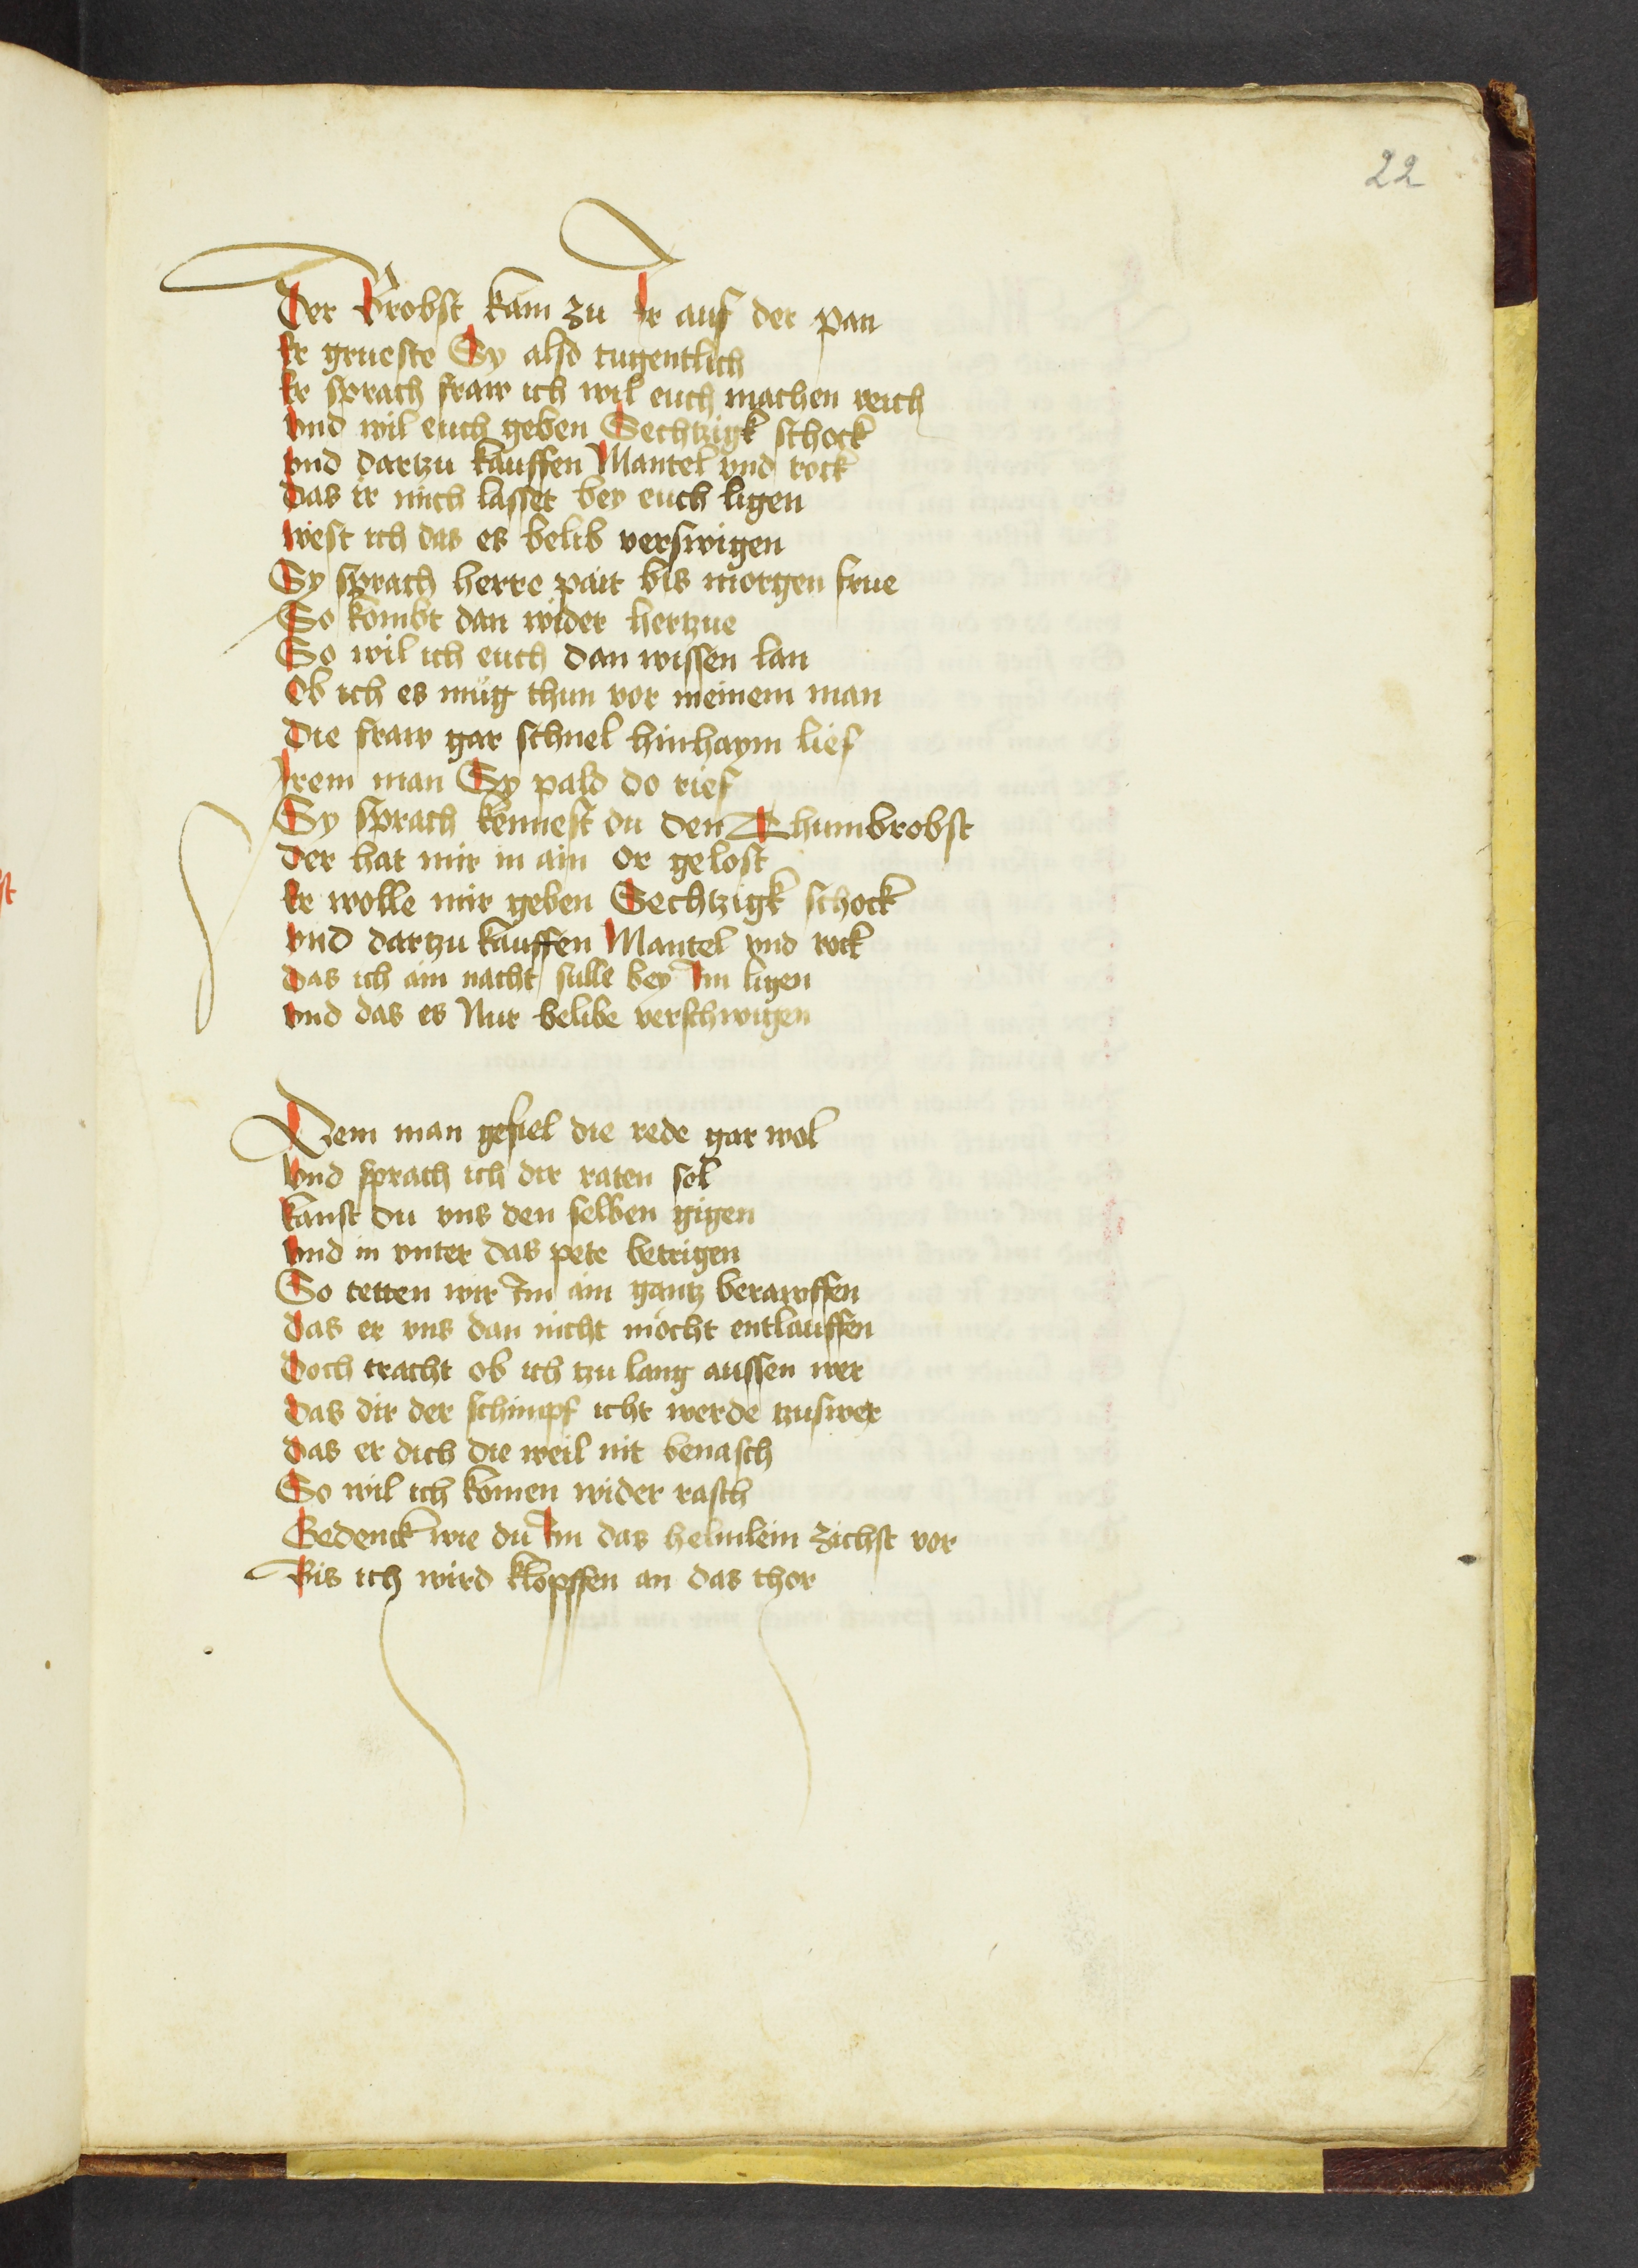 22
Der Brobst kam zu Ir auf der pan
Er grueste Sy also tugentlich
Er sprach fraw ich wil euch machen reich
vnd wil euch geben Sechtzigk schock
vnd dartzu kauffen Mantel vnd rock
das ir mich lasset bey euch ligen
west ich das es belib verswigen
Sy sprach herre pait bis morgen frue
So kombt dan wider hertzue
So wil ich euch dan wissen lan
Ob ich es mug thun vor meinem man
Die fraw gar schnel hinhaym lief
Irem man Sy pald do rief
Sy sprach kennest du den Thumbrobst
der hat mir in ain or gelost
Er wolle mir geben Sechtzigk schock
vnd dartzu kauffen Mantel vnd rock
das ich ain nacht sulle bey Im ligen
vnd das es Nur belibe verschwigen
Dem man gefiel die rede gar wol
vnd sprach ich dir raten sol
kanst du vns den selben gigen
vnd in vnter das pete betrigen
So tetten wir Im ain gantz berawffen
das er vns dan nicht mocht entlauffen
doch tracht ob ich tzu lang aussen wer
das dir der schimpf icht werde tzuswer
das er dich die weil nit benasch
So wil ich komen wider rasch
Gedenck wie du Im das helmlein zichst vor
Bis ich wird klopffen an das thor